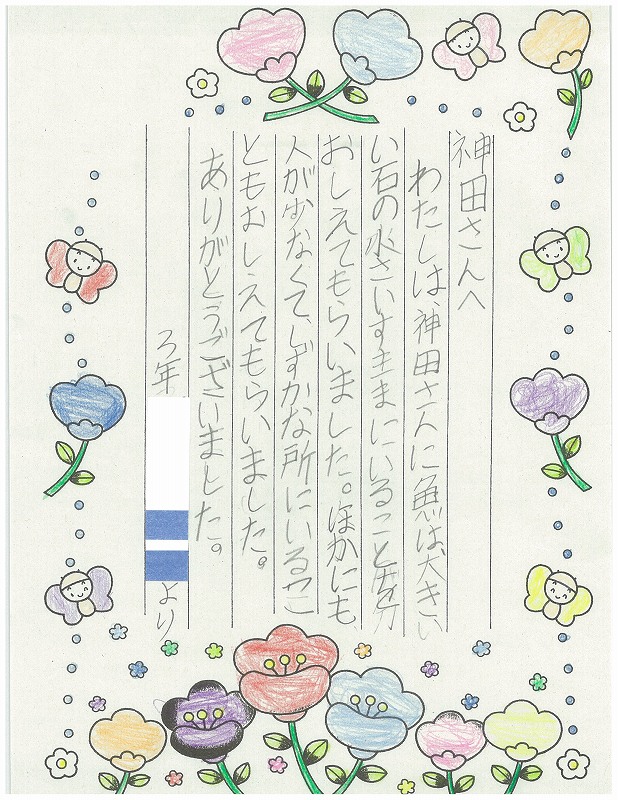 神田さんへ
わたしは、神田さんに魚は大きい
い石の水さいすきまにいること
おしえてもらいました。ほかにも
人が少なくて、しずかな所にいるこ
ともおしえてもらいました。
ありがとうございました。
3年 より